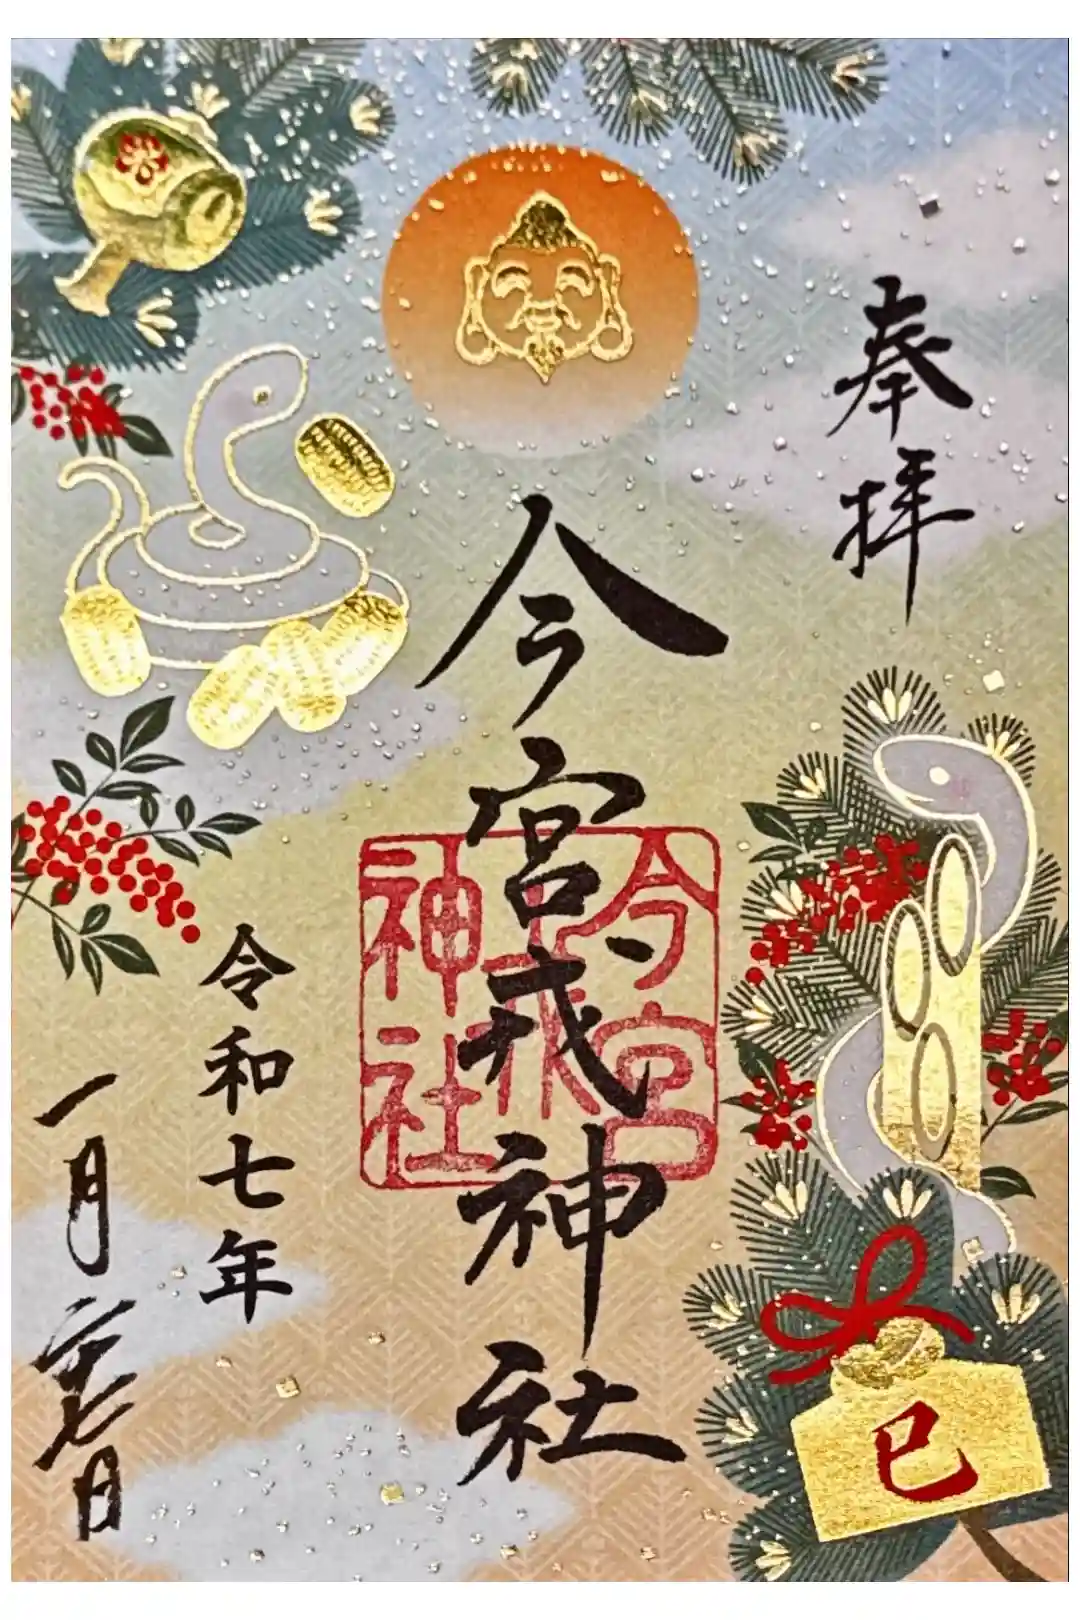 奉拝
今宮戎神社
今宮
戎
神社
令和七年
一月
日
巳